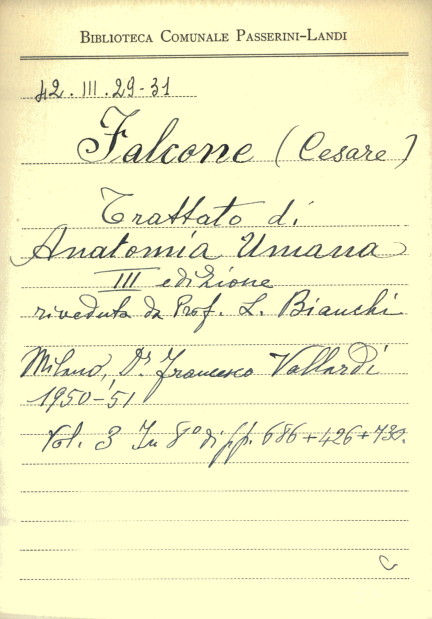 BIBLIOTECA COMUNALE PASSERINI-LANDI
42.III.29-31
Falcone (Cesare)
Trattato di
Anatomia Umana
III edizione
riveduta da Prof. L. Bianchi
Milano, Dr. Francesco Vallardi
1950-'51
Vol. 3 In 8° di pp. 686+426+730.
C